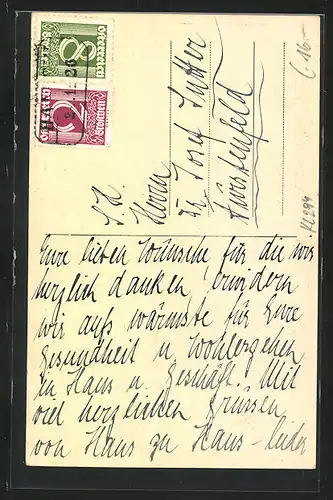 S. H.
Herrn
Dr. Josef Sutter
Fürstenfeld
Eure lieben Wünsche, für die wir
herzlich danken, erwidern
wir aufs wärmste für Eure
Gesundheit u Wohlergehen
in Haus u. Geschäft. Mit
viel herzlichen Grüssen
von Haus zu Haus - leider
8
Groschen
2
Groschen
16-